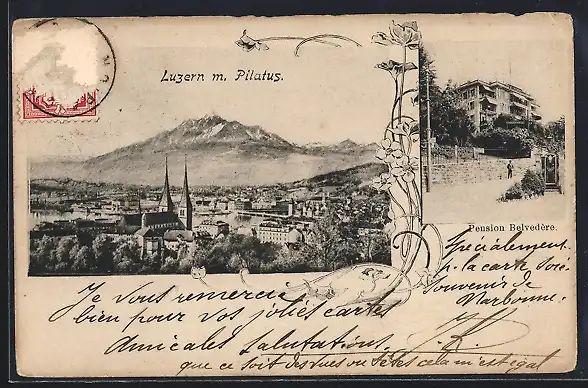 Luzern m. Pilatus.
Pension Belvedère.
Specialement
p. la carte soie
souvenir de
Narbonne.
Je vous remercie
bien pour vos jolies cartes
Amicales salutations.
que ce soit des vues ou têtes cela m'est égal